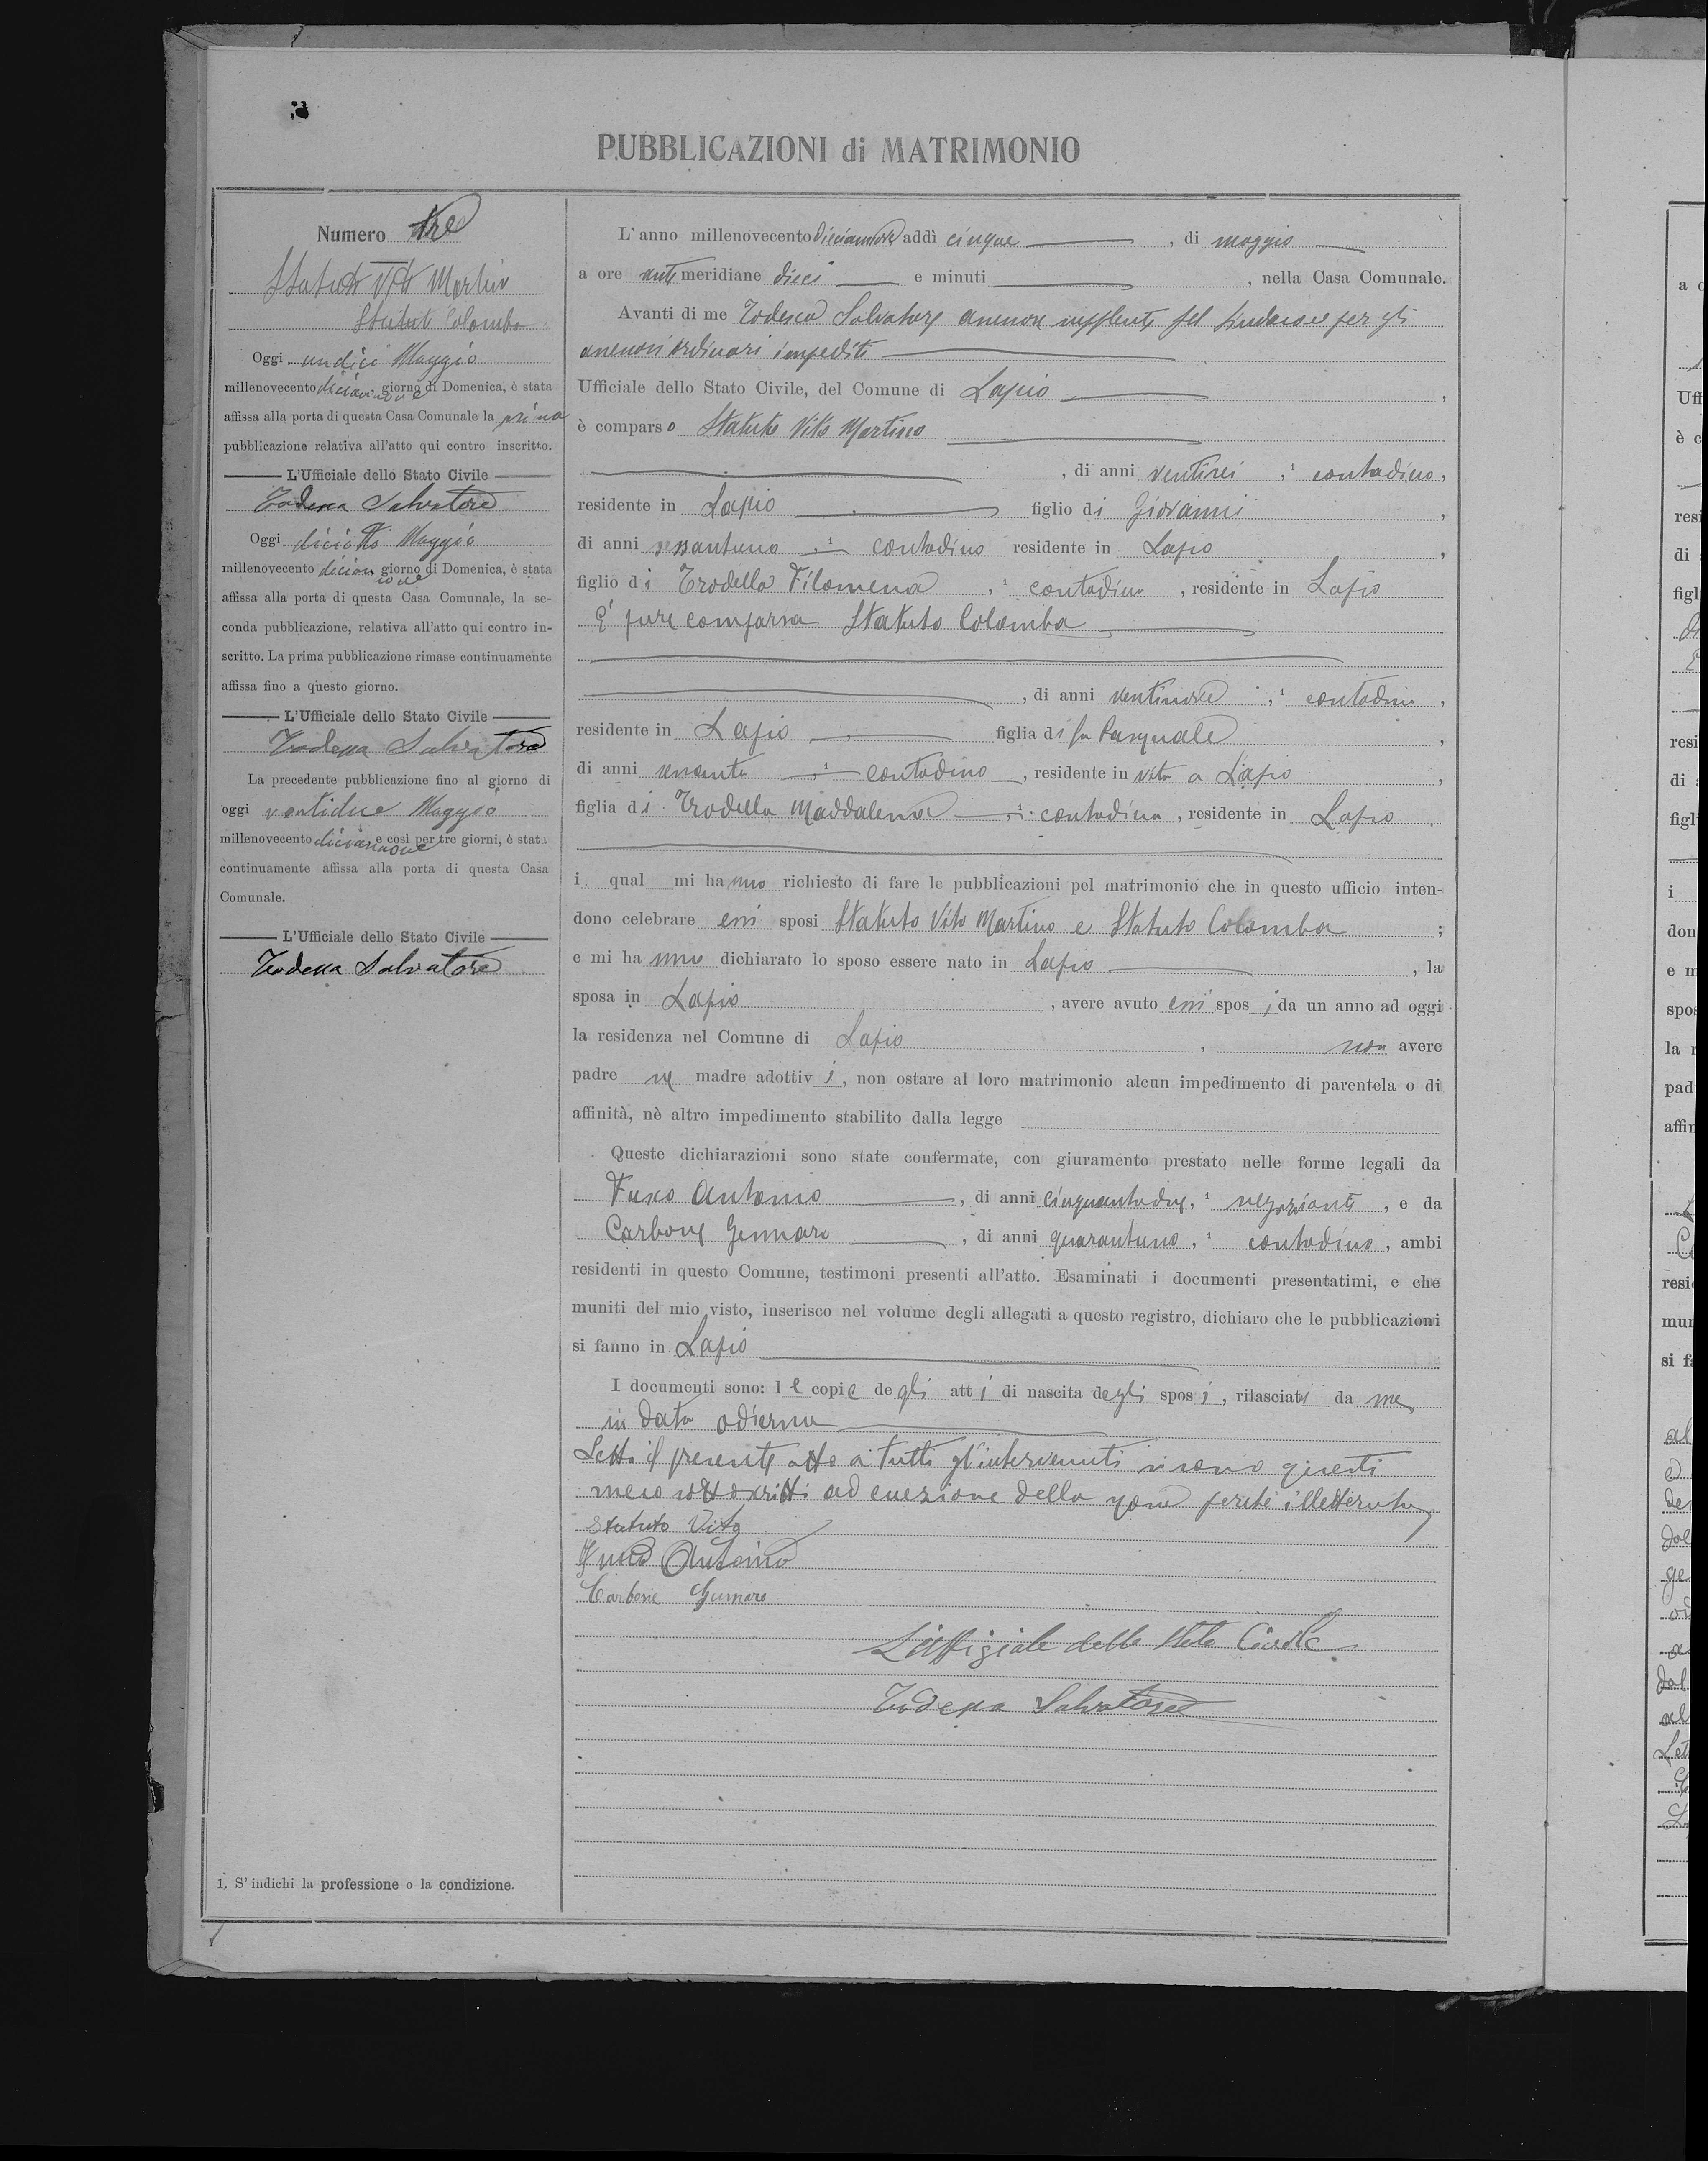 PUBBLICAZIONI di MATRIMONIO
Numero tre
Statuto Vito Martino
Statuto Colomba
Oggi undici Maggio
millenovecento diciannove giorno di Domenica, è stata
affissa alla porta di questa Casa Comunale la prima
pubblicazione relativa all'atto qui contro inscritto.
L'Ufficiale dello Stato Civile
Salvatore
Oggi diciotto Maggio
millenovecento diciannove giorno di Domenica, è stata
affissa alla porta di questa Casa Comunale, la se-
conda pubblicazione, relativa all'atto qui contro in-
scritto. La prima pubblicazione rimase continuamente
affissa fino a questo giorno.
L'Ufficiale dello Stato Civile
Salvatore
La precedente pubblicazione fino al giorno di
oggi ventidue Maggio
millenovecento diciannove e così per tre giorni, è stata
continuamente affissa alla porta di questa Casa
Comunale.
L'Ufficiale dello Stato Civile
Salvatore
1. S' indichi la professione o la condizione.
L'anno millenovecento diciannove addì cinque, di maggio
a ore antimeridiane dieci e minuti, nella Casa Comunale.
Avanti di me Salvatore assessore supplente pel sindaco e per gli
assessori ordinari impediti
Ufficiale dello Stato Civile, del Comune di Lapio,
è comparso Statuto Vito Martino
, di anni ventisei, ¹ contadino,
residente in Lapio figlio di Giovanni,
di anni sessantuno, ¹ contadino residente in Lapio,
figlio di Trodella Filomena, ¹ contadina, residente in Lapio
È pure comparsa Statuto Colomba
, di anni ventinove, ¹ contadina,
residente in Lapio figlia di fu Pasquale,
di anni sessanta, ¹ contadino, residente in vita a Lapio,
figlia di Trodella Maddalena, ¹ contadina, residente in Lapio
i qual mi hanno richiesto di fare le pubblicazioni pel matrimonio che in questo ufficio inten-
dono celebrare essi sposi Statuto Vito Martino e Statuto Colomba;
e mi hanno dichiarato lo sposo essere nato in Lapio, la
sposa in Lapio, avere avuto essi sposi da un anno ad oggi
la residenza nel Comune di Lapio, non avere
padre ne madre adottivi, non ostare al loro matrimonio alcun impedimento di parentela o di
affinità, nè altro impedimento stabilito dalla legge
Queste dichiarazioni sono state confermate, con giuramento prestato nelle forme legali da
Antonio, di anni cinquantadue, ¹ negoziante, e da
Carbone Gennaro, di anni quarantuno, ¹ contadino, ambi
residenti in questo Comune, testimoni presenti all'atto. Esaminati i documenti presentatimi, e che
muniti del mio visto, inserisco nel volume degli allegati a questo registro, dichiaro che le pubblicazioni
si fanno in Lapio
I documenti sono: le copie degli atti di nascita degli sposi, rilasciati da me
in data odierna
Letto il presente atto a tutti gl'intervenuti si sono questi
meco sottoscritti ad eccezione della sposa perché illetterata
Statuto Vito
Antonio
Carbone Gennaro
L'Uffiziale dello Stato Civile
Salvatore